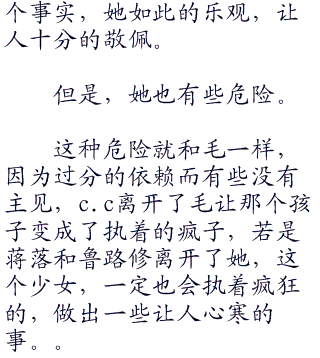 个事实，她如此的乐观，让
人十分的敬佩。
但是，她也有些危险。
这种危险就和毛一样，
因为过分的依赖而有些没有
主见，c.c离开了毛让那个孩
子变成了执着的疯子，若是
蒋落和鲁路修离开了她，这
个少女，一定也会执着疯狂
的，做出一些让人心寒的
事。。